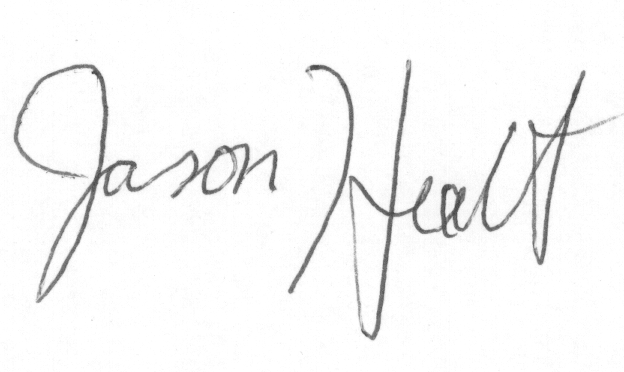 Jason Healt